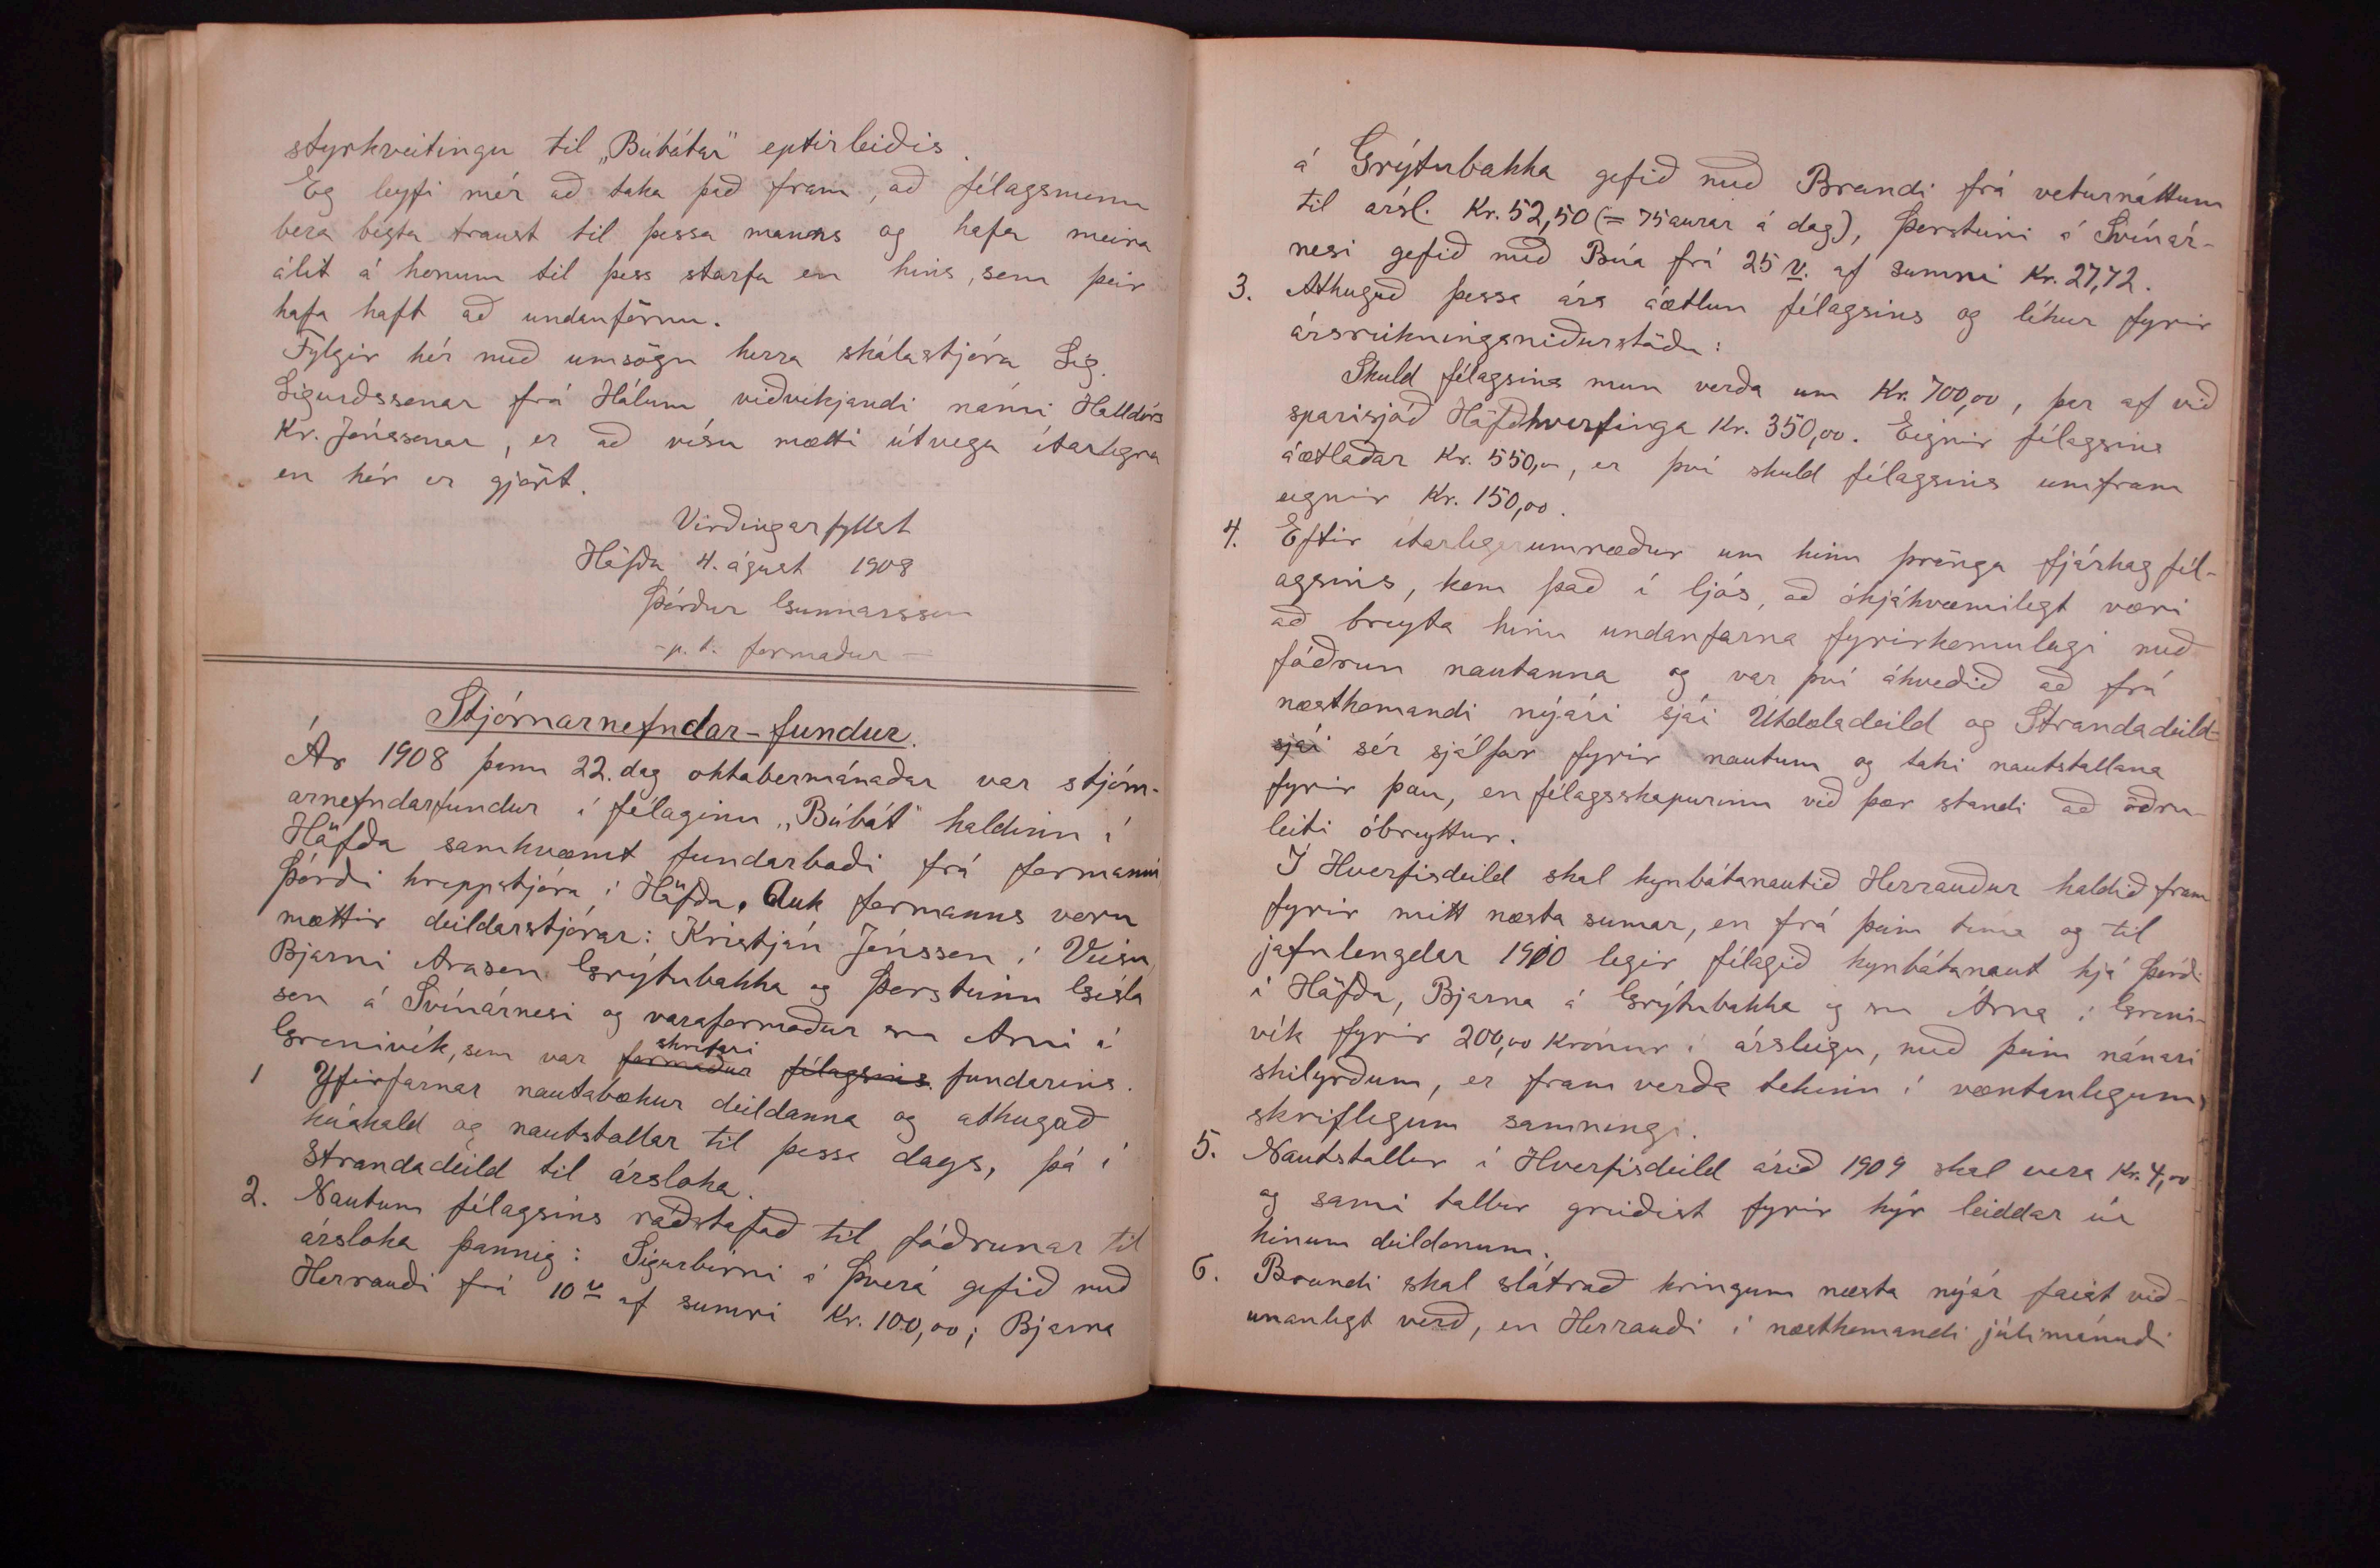 styrkveitingu til „Búbótar" eptirleiðis.
Eg leyfi mér að taka það fram, að félagsmenn
bera bezta traust til þessa manns og hafa meira
álit á honum til þess starfa en hins, sem þeir
hafa haft að undanförnu.
Fylgir hér með umsögn herra skólastjóra Sig.
Sigurðssonar frá Hólum viðvíkjandi námi Halldórs
Kr. Jónssonar, er að vísu mætti útvega ítarlegra
en hér er gjört.
Virðingarfyllst
Höfða 4. ágúst 1908
Þórður Gunnarsson
- p.t. formaður -
Stjórnarnefndar-fundur.
Ár 1908 þann 22. dag októbermánaðar var stjórn-
arnefndarfundur í félaginu „Búbót" haldinn í
Höfða samkvæmt fundarboði frá formanni
Þórði hreppstjóra í Höfða. Auk formanns voru
mættir deildarstjórar: Kristján Jónsson í Veisu
Bjarni Arason Grýtubakka og Þorsteinn Gísla
son á Svínárnesi og varaformaður sra Árni í
Grenivík, sem var formaður skrifari félagsins fundarins.
1 Yfirfarnar nautabækur deildanna og athugað
kúahald og nautstollar til þessa dags, þá í
Strandadeild til ársloka.
2. Nautum félagsins ráðstafað til fóðrunar til
ársloka þannig: Sigurbirni á Þverá gefið með
Herrauði frá 10 v af sumri Kr. 100,00; Bjarna
á Grýtubakka gefið með Brandi frá veturnáttum
til ársl. Kr. 52,50 (= 75 aurar á dag), Þorsteini á Svínár-
nesi gefið með Búa frá 25 v. af sumri Kr. 27,72.
3. Athuguð þessa árs áætlun félagsins og líkur fyrir
ársreikningsniðurstöðu:
Skuld félagsins mun verða um Kr. 700,00, þar af við
sparisjóð Höfðhverfinga Kr. 350,00. Eignir félagsins
áætlaðar Kr. 550,00, er því skuld félagsins umfram
eignir Kr. 150,00.
4. Eftir ítarlegar umræður um hinn þrönga fjárhag fél-
agsins, kom það í ljós, að óhjákvæmilegt væri
að breyta hinu undanfarna fyrirkomulagi með
fóðrun nautanna og var því ákveðið að frá
næstkomandi nýári sjái Útdæladeild og Strandadeild
sjái sér sjálfar fyrir nautum og taki nautstollana
fyrir þau, en félagsskapurinn við þær standi að öðru
leiti óbreyttur.
Í Hverfisdeild skal kynbótanautið Herrauður haldið fram
fyrir mitt næsta sumar, en frá þeim tíma og til
jafnlengdar 1910 legir félagið kynbótanaut hjá Þórði
í Höfða, Bjarna á Grýtubakka og sra Árna í Greni-
vík fyrir 200,00 krónur í ársleigu, með þeim nánari
skilyrðum, er fram verða tekin í væntanlegum
skriflegum samningi.
5. Nautstollur í Hverfisdeild árið 1909 skal vera Kr. 4,00
og sami tollur greiðist fyrir kýr leiddar úr
hinum deildonum.
6. Brandi skal slátrað kringum næsta nýár faist við-
unanlegt verð, en Herrauði í næstkomandi júlímánuði